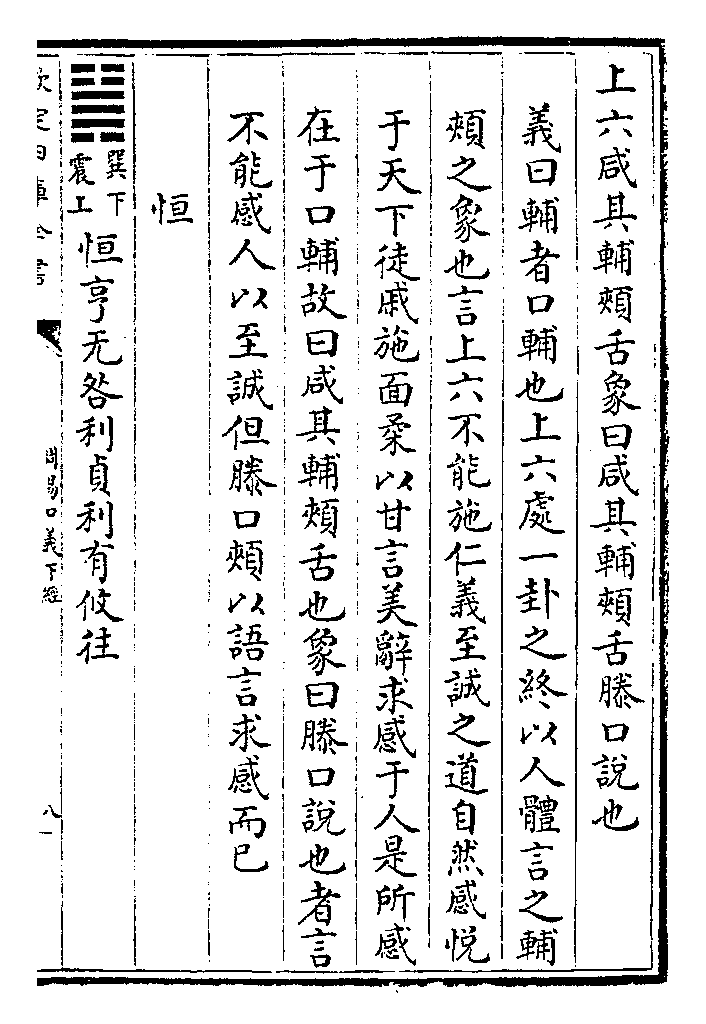 上六咸其輔頰舌象曰咸其輔頰舌滕口說也
義曰輔者口輔也上六處一卦之終以人體言之輔
頰之象也言上六不能施仁義至誠之道自然感悅
于天下徒戚施面柔以甘言美辭求感于人是所感
在于口輔故曰咸其輔頰舌也象曰滕口說也者言
不能感人以至誠但滕口頰以語言求感而已
恒
巽下
震上
恒亨无咎利貞利有攸往
欽定四庫全書
周易口義下經
八